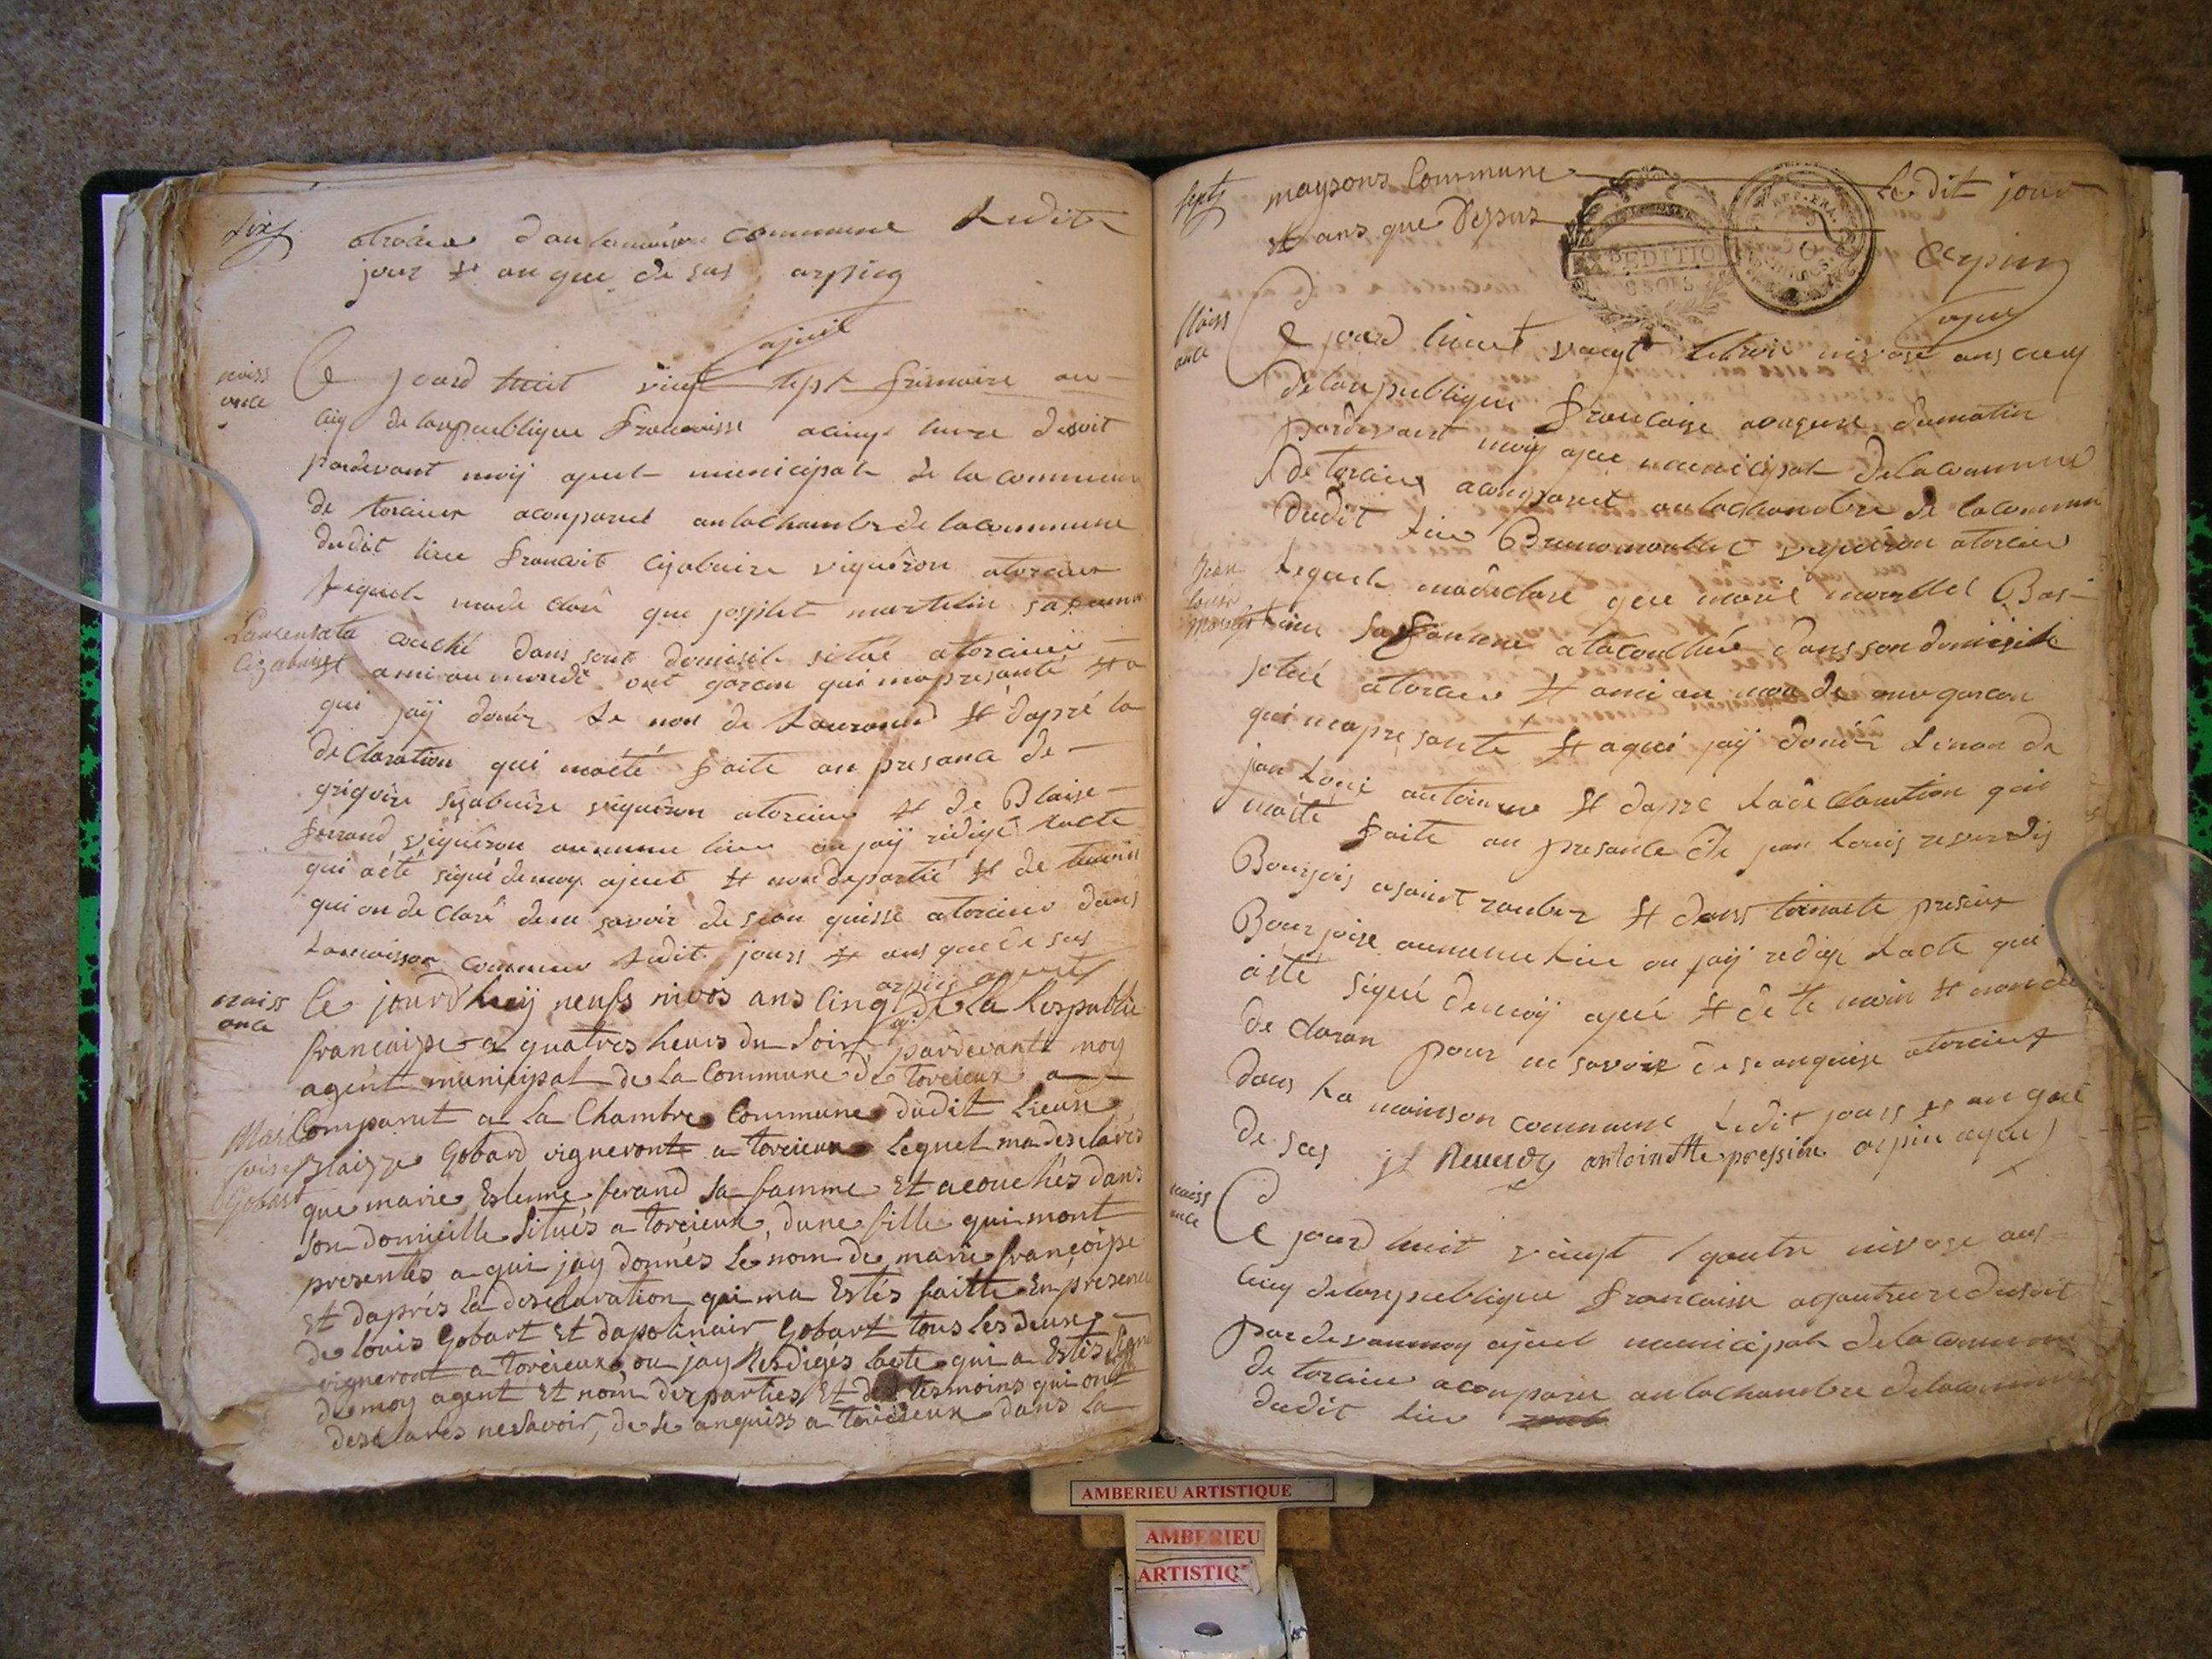 six
dans la maison commune ledit
jour et an que de sus arpin
ajeut
naiss
ance
Ce jourd huit vint sept frimaire an
cinq de la republique francaisse a cinqt heure desoit
pardevant moij ajeut municipal de la commune
de torcieux aconparut anlachambre de lacommune
dudit lieu francoit vigneron atorcieux
lequel made claré que martelin safamme
couché dans sont domicil situé a torcieu
et ami au monde ont garcon qui mapresanté et a
qui jaij donér le non de Laurand et dapré la
declaration qui maété faite an presance de
grigoire vigneron atorcieu et de Blaise
ferrand vigneron aumeme lieu au jaij redigé lacte
qui aété signé demoy ajeut et non departié et de temoin
qui on declaré dene savoir design quisse atorcieu dans
lamaison commune ledit jours et ans que de sus
arpin ajeut
naiss
ance
Ce jourd'huij neufs nivos ans Cinq de la Respublic
francaisse a quatres heurs du Soir, pardevantt moy
agent municipal de la Commune de Torcieux a
Comparut a La Chambre Commune dudit Lieux
Blaizze Gobard vigneront a torcieux Lequel ma desclarés
que marie Estenne ferand Sa famme Et acouchés dans
Son domicille Situés a Torcieux, dune fille qui mont
presentés a qui jay donnés Le nom de marie françoise
Et daprés La desclaration qui ma Estés faitte En presence
de Louis Gobart Et dapolinair Gobart tous les deux
vigneront a Torcieux ou jay Resdigés lacte qui a Estés Signé
de moy agent Et nom des parties Et des tesmoins qui ont
desclarés ne Savoir, de Se anquiss a Torcieux dans la
Marie
foise
Gobart
sept
maysons Commune Le dit jour
et ans que Dessus
Arpin
ajeut
Naiss
ance
Ce jourd huit vingt nivose ans cinq
delarepublique francaise aonzeure dumatin
pardevant moij ajeu municipal delacommune
de torcieu aconparut anlachambre de lacommune
dudit lieu vigneron atorcieu
Jean
louis
lequel madeclare que marie
sa famme a lacouchée dans son domicile
situé a torcieu et ami au monde un garcon
qui mapresanté et aqui jaij donér lenon de
jan Loui antoinne et dapre ladeclaration qui
maété faite an presance de jan louis reverdij
Bourjois asaint ranber et dans toinette presier
Bourjoise aumeme lieu au jaij redige lacte qui
aété signé demoij ajeu et de te moin et non de
de claran pour ne savoir de seanquise atorcieu
dans la maison commune ledit jours et an que
de sus jL Reverdy antoinette pressiere arpin ajeu
naiss
ance
Ce jourd huit vingt quatre nivose ans
cinq delarepublique francaisse aquatreure dusoit
pardevanmoy ajeut municipal delacommune
de torcieu aconpare anlachambre delacommune
dudit lieu
AMBERIEU ARTISTIQUE
AMBERIEU
ARTISTIQ